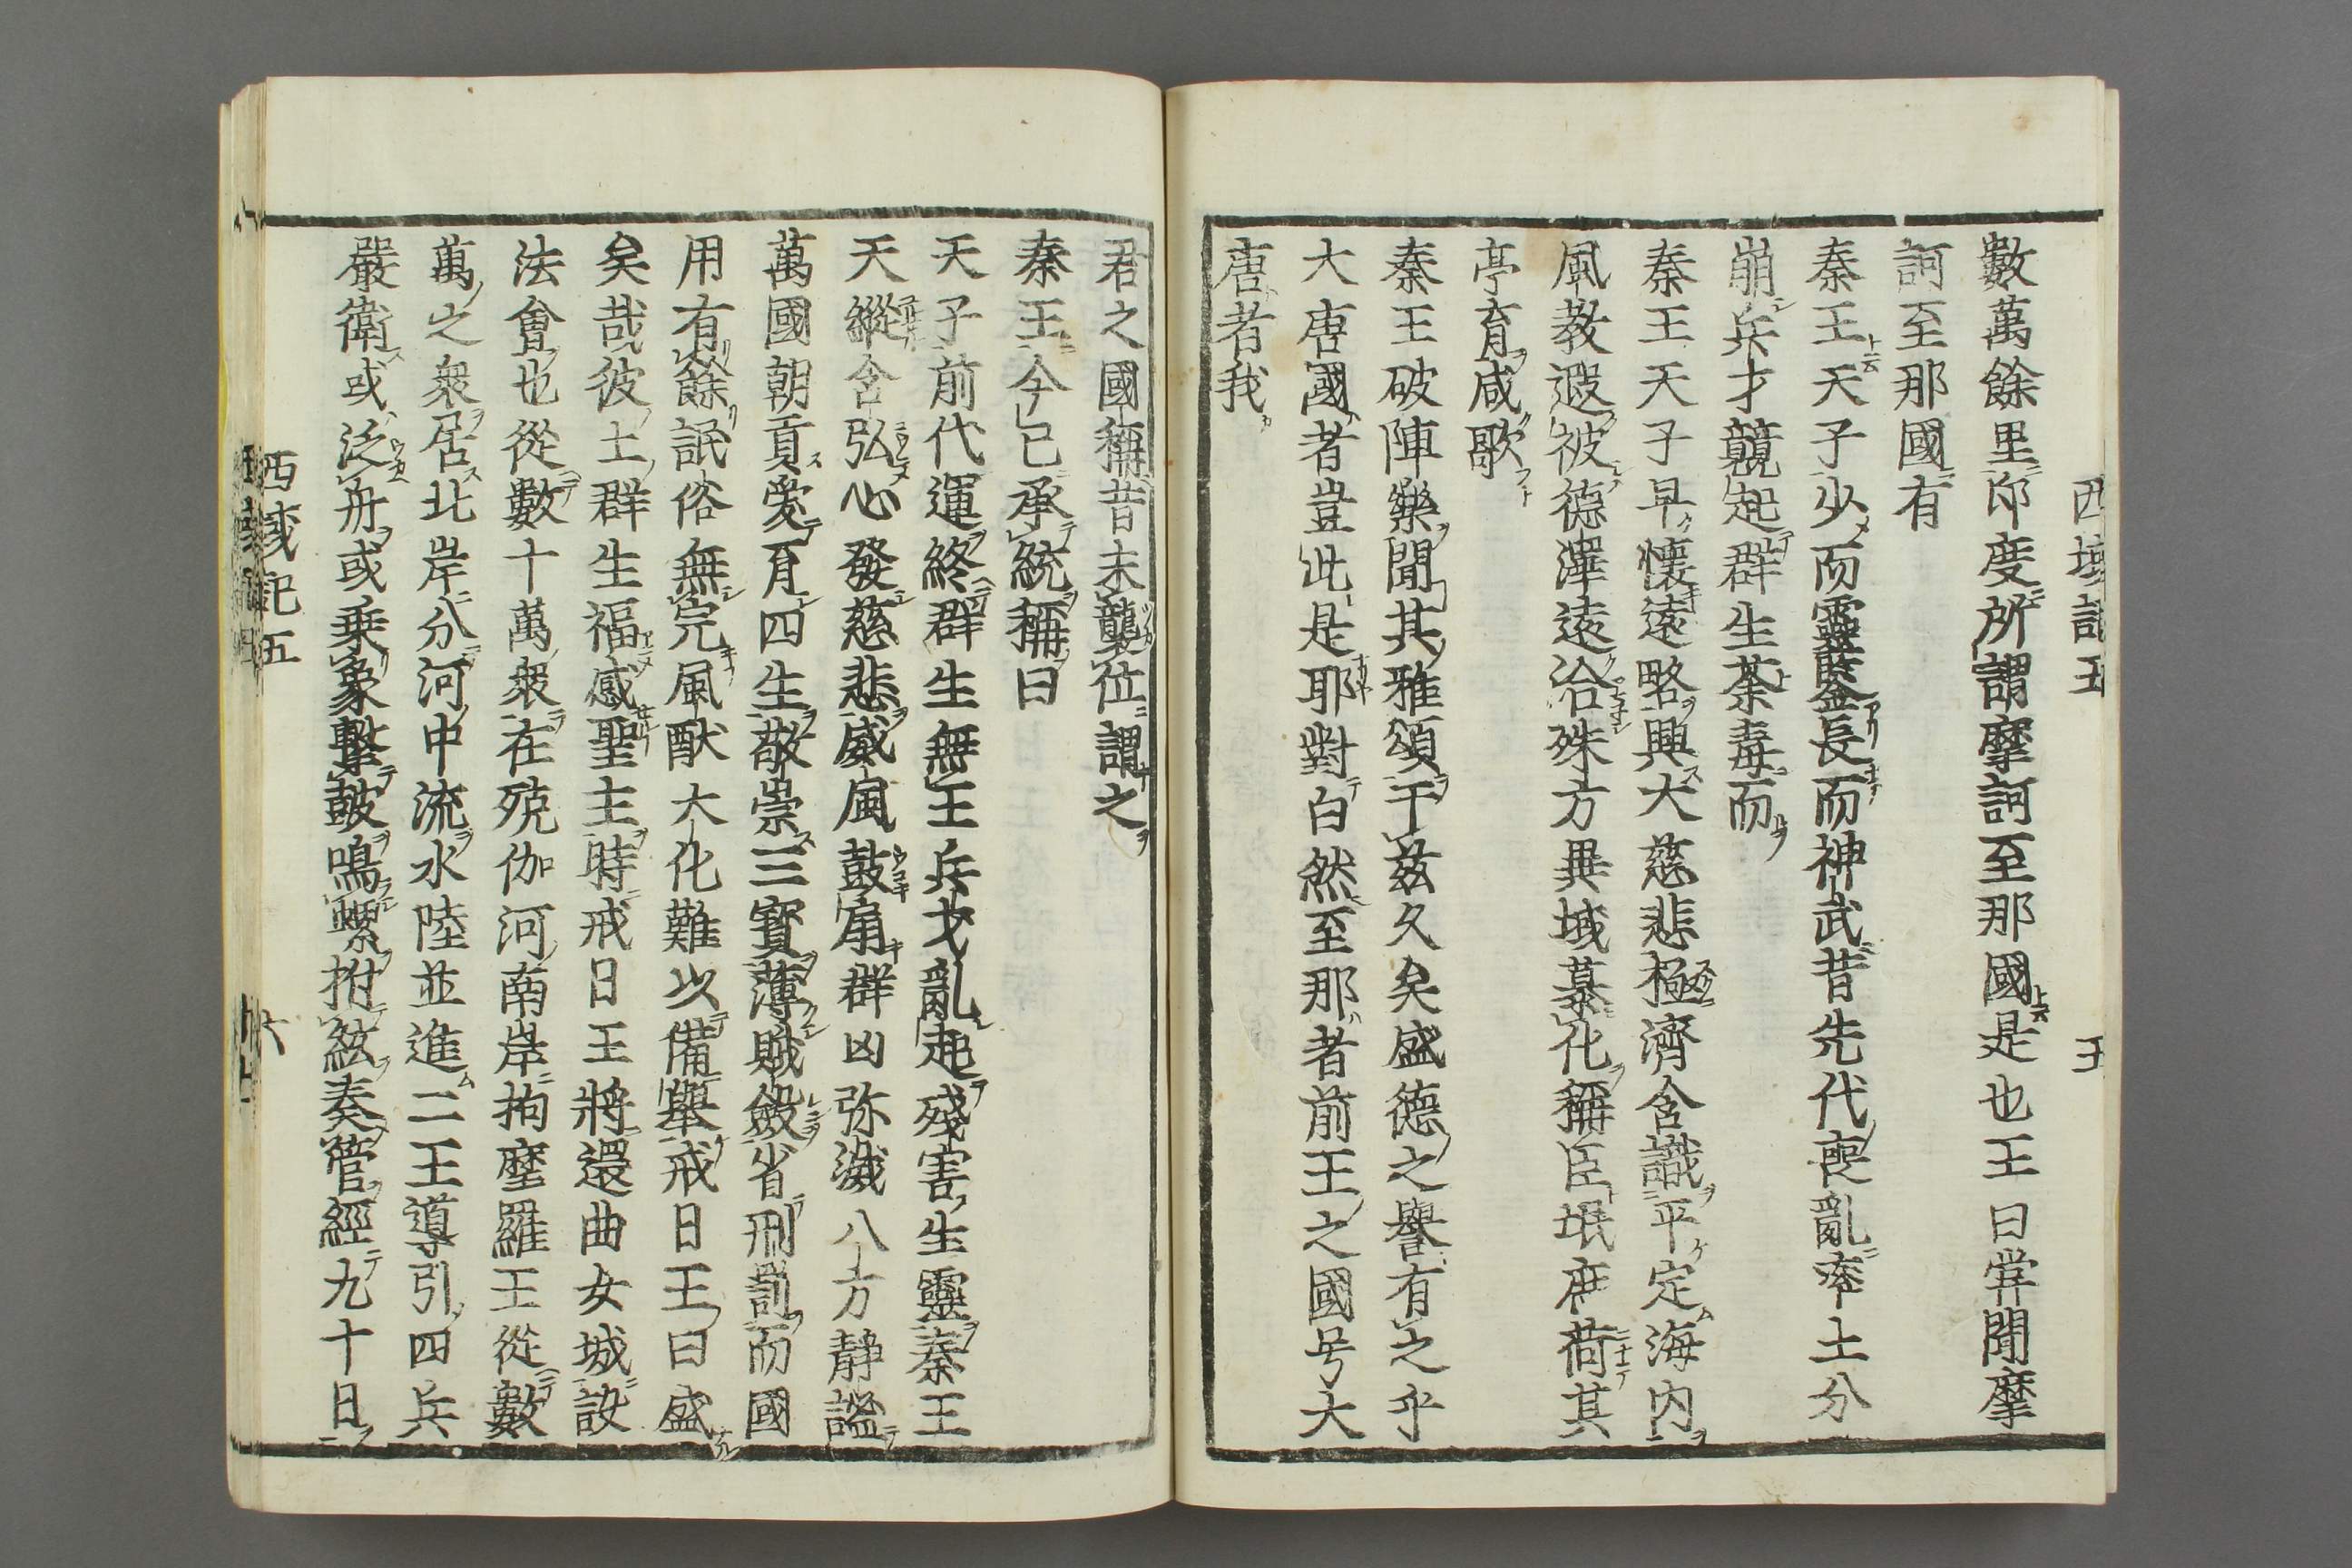 西域記五　五
數萬餘里印度所謂摩訶至那國是也王曰甞聞摩
訶至那國有
秦王天子少而靈鑒長而神武昔先代喪亂率土分
崩兵才競起群生荼毒而
秦王天子早懷遠略興大慈悲極濟含識平定海内
風教遐被德澤遠洽殊方異域慕化稱臣氓庶荷其
亭育咸歌
秦王破陣樂聞其雅頌于茲久矣盛德之譽有之乎
大唐國者豈此是耶對白然至那者前王之國号大
唐者我
君之國稱昔未襲位謂之
秦王今已承統稱曰
天子前代運終群生無主兵戈亂起殘害生靈秦王
天縱含弘心發慈悲威風鼓扇群凶弥滅八方靜謐
萬國朝貢愛育四生敬崇三寳薄賊斂省刑罰而國
用有餘詃俗無宄風猷大化難以備舉戒日王曰盛
矣哉彼土群生福感聖主時戒日王將還曲女城設
法會也從數十萬衆在殑伽河南岸拘摩羅王從數
萬之衆居北岸分河中流水陸並進二王導引四兵
嚴衛或泛舟或乗象擊鼓鳴螺拊絃奏管經九十日
西域記五　六